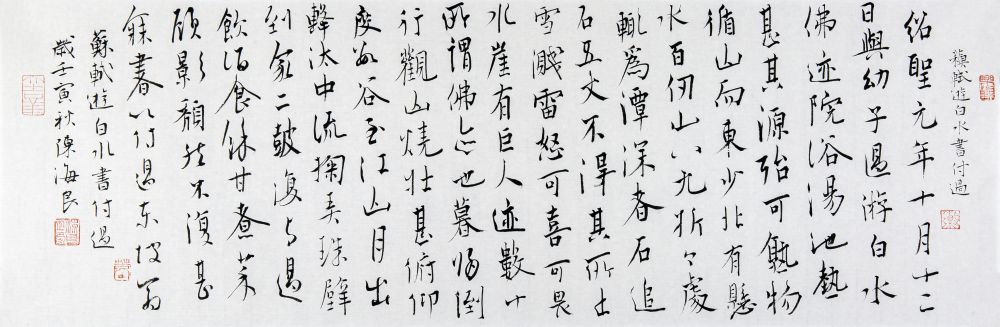 蘇軾遊白水書付過
紹聖元年十月十二
日與幼子過游白水
佛迹院浴湯池熱
甚其源殆可熟物
循山而東少北有懸
水百仞山八九折々處
輒為潭深者磓
石五丈不得其所止
雪濺雷怒可喜可畏
水崖有巨人迹數十
所謂佛迹也暮歸倒
行觀山燒壮甚俯仰
度數谷至江山月出
擊汰中流掬弄珠璧
到家二皷復与過
飲酒食餘甘煮菜
顧影頹然不復甚
寐書以付過東坡翁
蘇軾遊白水書付過
歲壬寅秋陳海良